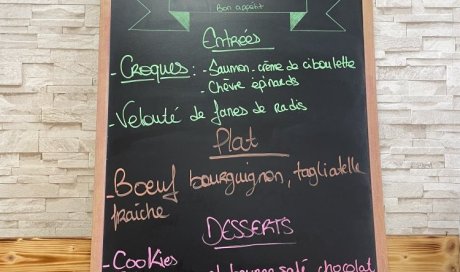 Bon appétit
Entrées
- Croques : - Saumon - crème de ciboulette
- Chèvre épinards
- Velouté de fanes de radis
Plat
- Boeuf bourguignon, tagliatelle
fraîche
DESSERTS
- Cookies
chocolat